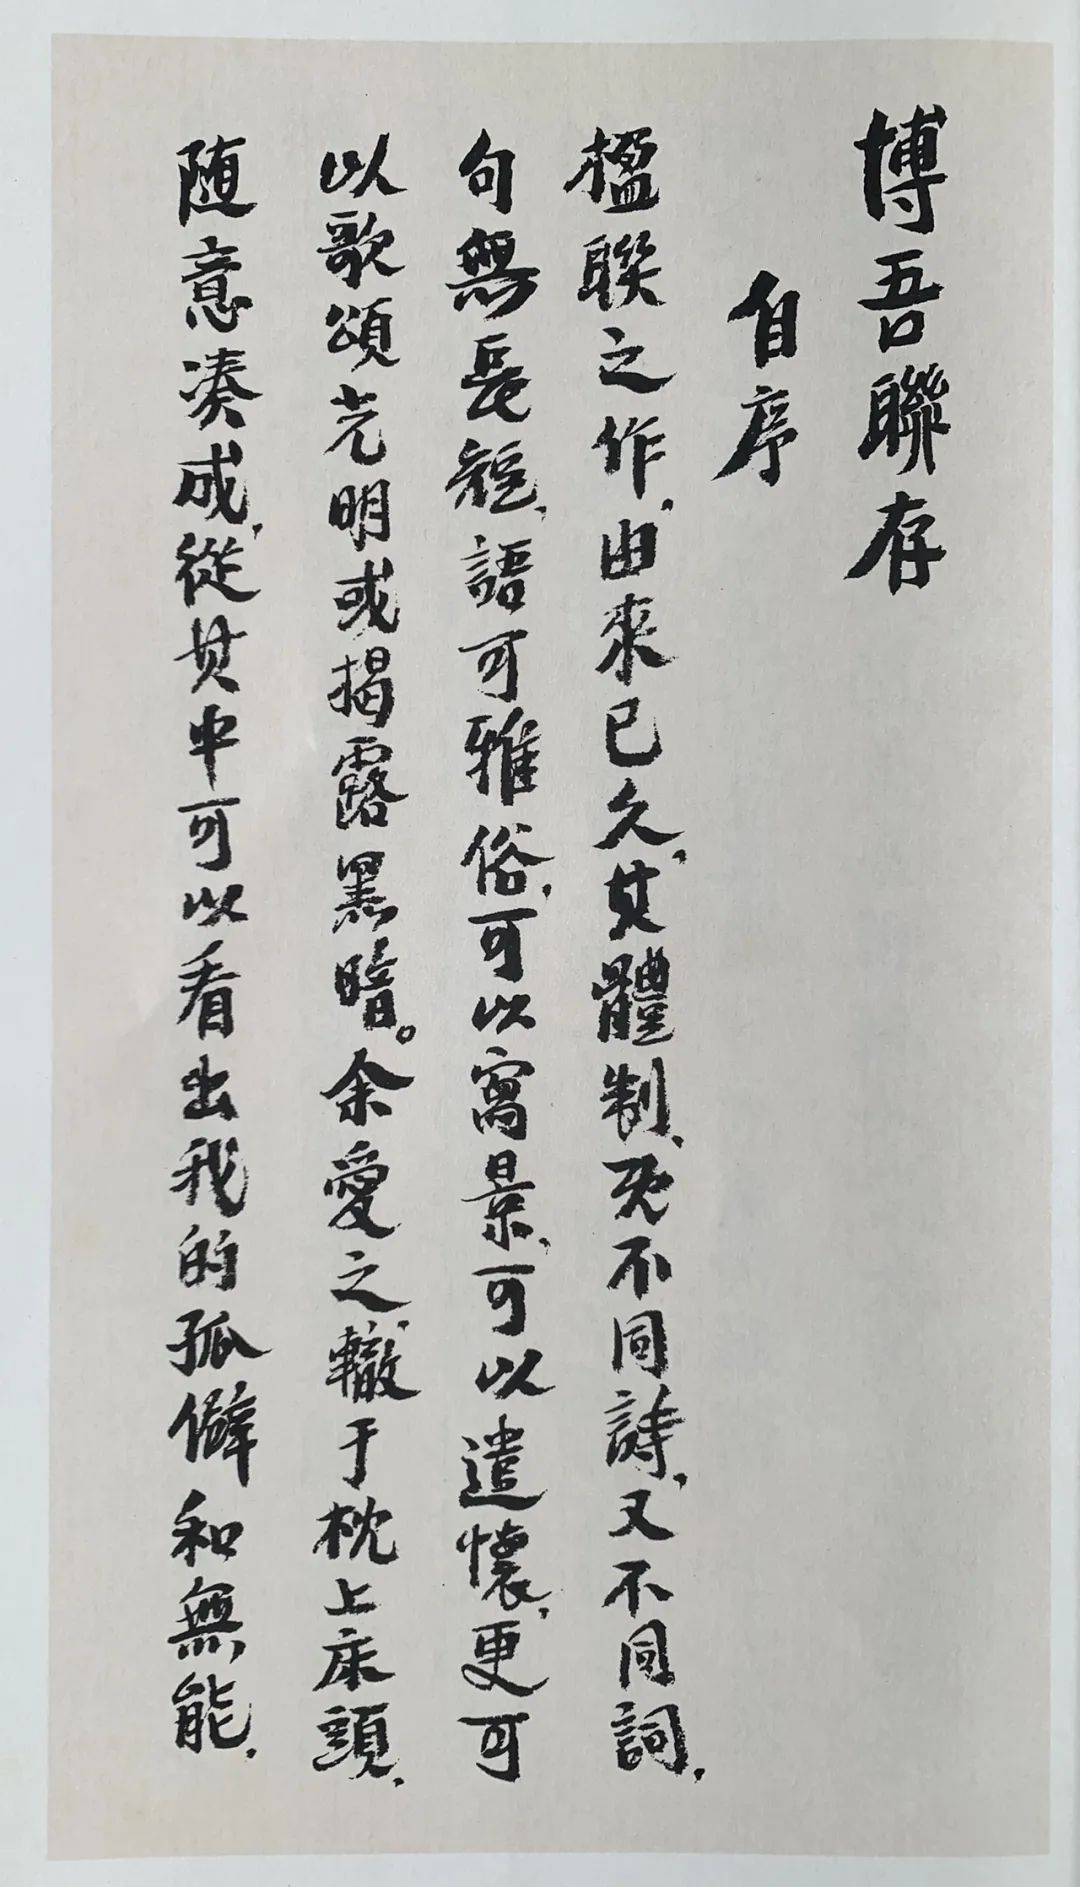 博吾聯存
自序
楹聯之作，由來已久，其體制，既不同詩，又不同詞，
句無長短，語可雅俗，可以寫景，可以遣懷，更可
以歌頌光明或揭露黑暗。余愛之，輒于枕上床頭，
随意凑成，從其中可以看出我的孤僻和無能，